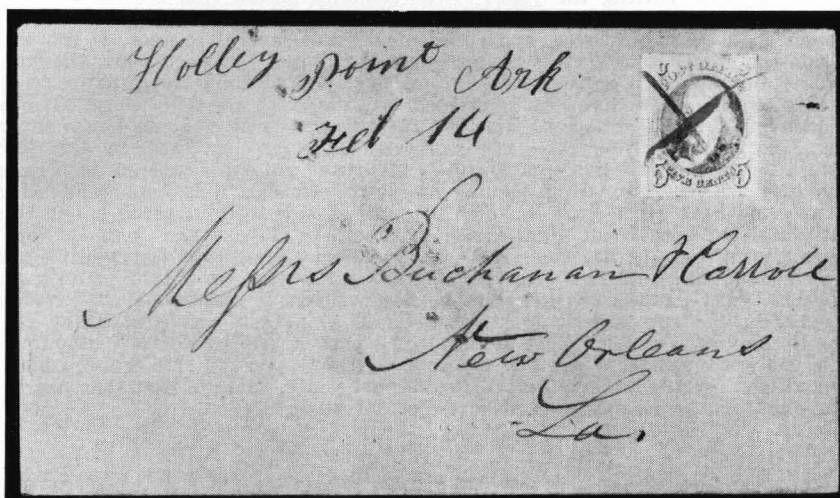 Holley Point Ark
Feb 14
POST OFFICE
5 FIVE CENTS 5
Messrs Buchanan Carroll
New Orleans
La.